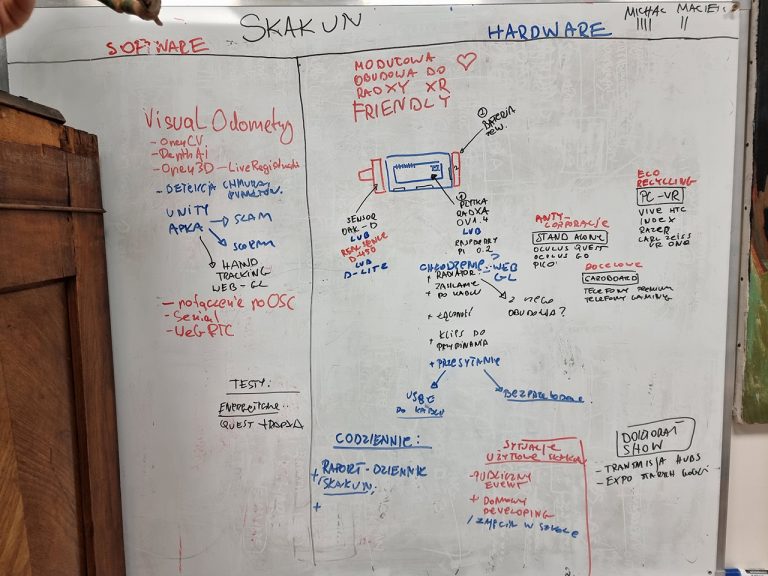 SKAKUN
SOFTWARE
HARDWARE
MICHAŁ
MODUŁOWA
OBUDOWA DO
RADXY XR
FRIENDLY
Visual Odometry
- OpenCV
- Depth AI
- Open3D -
- DETEKCJA CHMURY
PUNKTÓW
UNITY
APKA
SLAM
HAND
TRACKING
WEB-GL
- połączenie po OSC
- Serial
- WebRTC
TESTY:
ENERGETYCZNE
① BATERIA
ZEW.
SENSOR
OAK-D
LUB
REALSENSE
LUB
D-LITE
② PŁYTKA
RADXA
LUB
RASPBERRY
CHŁODZENIE?
WEB
GL
+ RADIATOR
+ ZASILANIE
+ PO KABLU
Z NIEGO
OBUDOWA?
+ ŁĄCZNOŚĆ
+ KLIPS DO
PRZYPINANIA
+ PRZESYŁANIE
USB C
PO KABLU
BEZPRZEWODOWE
ANTY-
CORPORACJE
STAND ALONE
OCULUS QUEST
OCULUS GO
PICO
ECO
RECYCLING
PC-VR
VIVE HTC
INDEX
RAZER
CARL ZEISS
VR ONE
DOCELOWE
CARDBOARD
TELEFONY PREMIUM
TELEFONY GAMING
CODZIENNIE:
+ RAPORT-DZIENNIK
SKAKUN
+
SYTUACJE
UŻYTKOWE
PUBLICZNY
EVENT
+ DOMOWY
DEVELOPING
/ ZAJĘCIA W SZKOLE
DOKTORAT
SHOW
- TRANSMISJA HUBS
- EXPO STARYCH GOGLI